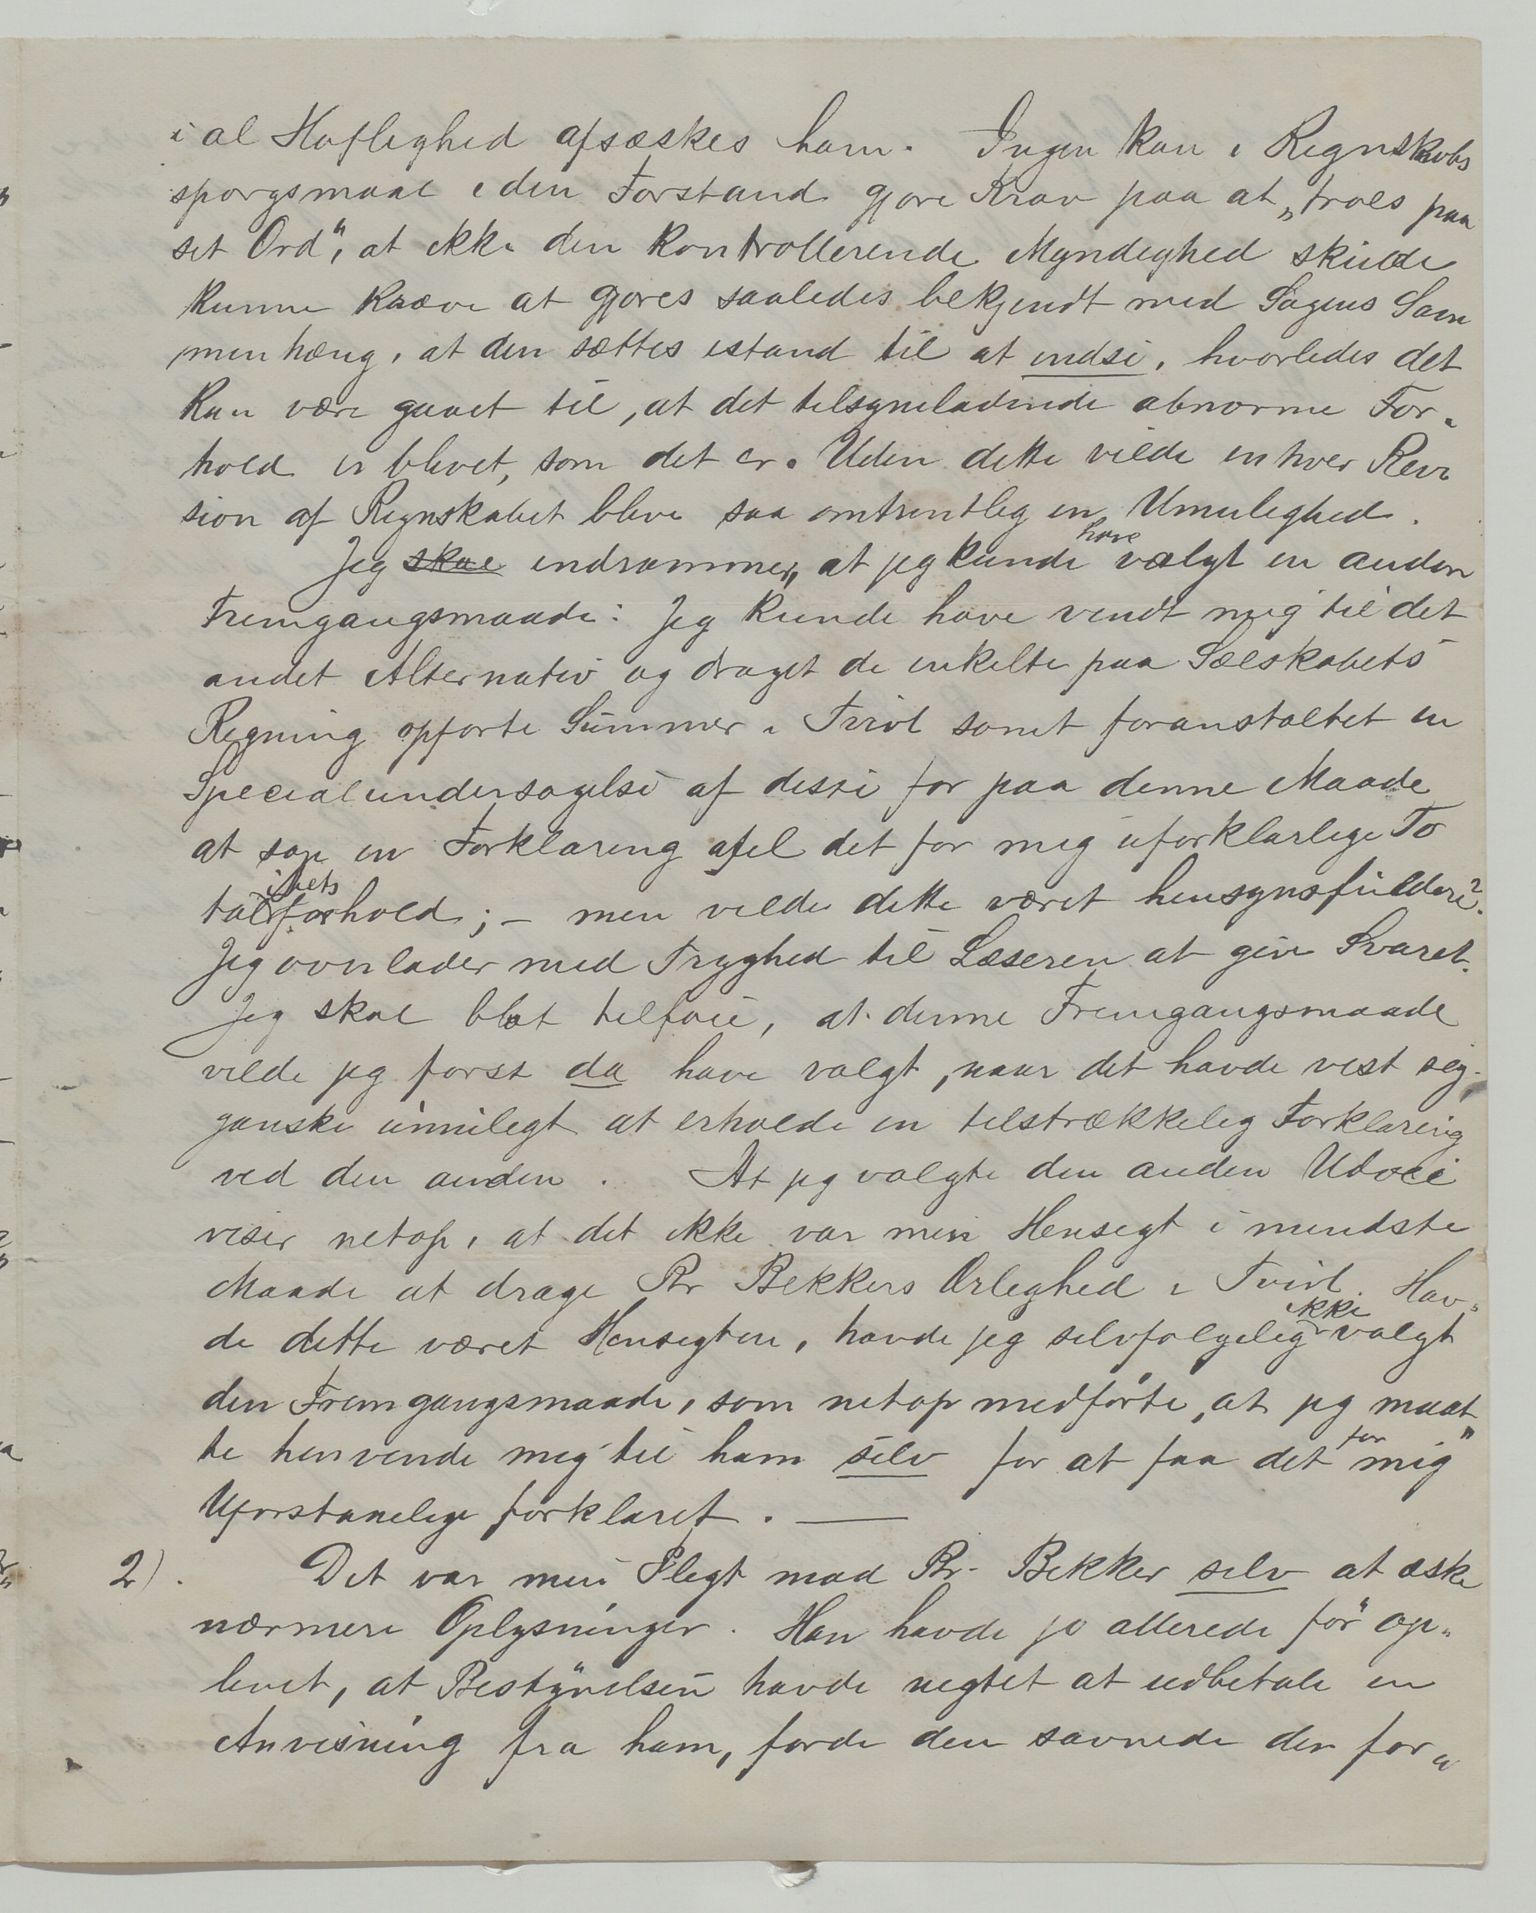 i al Høflighed afæskes ham. Ingen kan i Regnskabs
spørgsmaal i den Forstand gjøre Krav paa at „troes paa
sit Ord", at ikke den kontrollerende Myndighed skulde
kunne kræve at gjøres saaledes bekjendt med Sagens Sam
menhæng, at den sættes istand til at indse, hvorledes det
kan være gaaet til, at det tilsyneladende abnorme For-
hold er blevet, som det er. Uden dette vilde enhver Revi
sion af Regnskabet blive saa omtrentlig en Umulighed.
Jeg skal indrømmer, at jeg kunde have valgt en anden
Fremgangsmaade: Jeg kunde have vendt mig til det
andet Alternativ og draget de enkelte paa Selskabets
Regning opførte Summer i Tvivl samt foranstaltet en
Specialundersøgelse af disse for paa denne Maade
at søge en Forklaring af det for mig uforklarlige To
talforhold; – men vilde dette været hensynsfuldere?
Jeg overlader med Tryghed til Læseren at give Svaret.
Jeg skal blot tilføie, at denne Fremgangsmaade
vilde jeg først da have valgt, naar det havde vist sig
ganske umuligt at erholde en tilstrækkelig Forklaring
ved den anden. At jeg valgte den anden Udvei
viser netop, at det ikke var min Hensigt i mindste
Maade at drage Pr Bekkers Ærlighed i Tvivl. Hav-
de dette været Hensigten, havde jeg selvfølgelig ikke valgt
den Fremgangsmaade, som netop medførte, at jeg maat-
te henvende mig til ham selv for at faa det for mig
Uforstaaelige forklaret. —
2). Det var min Pligt mod Pr. Bekker selv at æske
nærmere Oplysninger. Han havde jo allerede før op-
levet, at Bestyrelsen havde negtet at udbetale en
Anvisning fra ham, fordi den savnede den for-